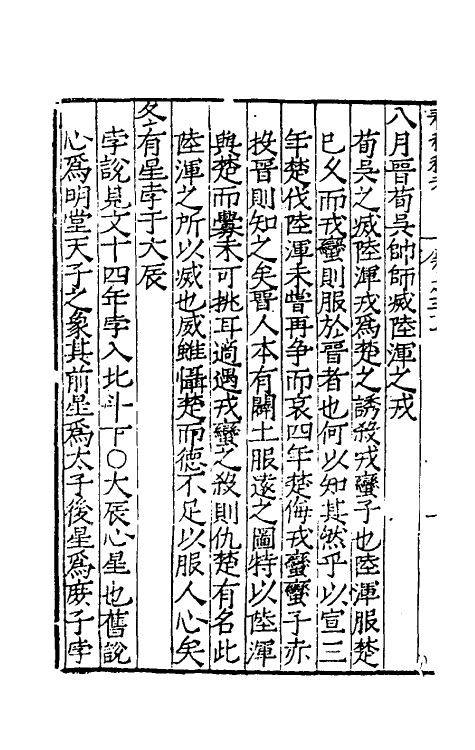 八月晉荀吳帥師滅陸渾之戎
荀吳之滅陸渾戎爲楚之誘殺戎蠻子也陸渾服楚
已久而戎蠻則服於晉者也何以知其然乎以宣三
年楚伐陸渾未嘗再争而哀四年楚侮戎蠻蠻子赤
投晉則知之矣晉人本有闢土服遠之圖特以陸渾
與楚而釁未可挑耳適遇戎蠻之殺則仇楚有名此
陸渾之所以滅也威雖懾楚而德不足以服人心矣
冬有星孛于大辰
孛說見文十四年孛入北斗下○大辰心星也舊說
心爲明堂天子之象其前星爲太子後星爲庶子孛